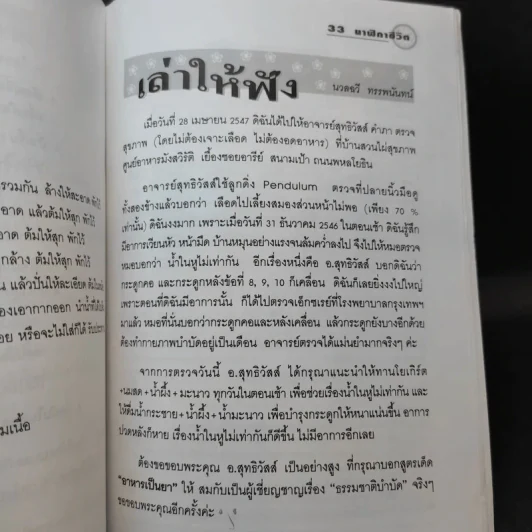 รวมกัน ล้างให้สะอาด
อาด แล้วต้มให้สุก พักไว้
าด ต้มให้สุก พักไว้
กล้าง ต้มให้สุก พักไว้
แล้วปั่นให้ละเอียด ต้มในหม้อ
องเอากากออก นำน้ำที่ได้
อย หรือจะไม่ใส่ก็ได้ รับประทาน
มเนื้อ
33 นาฬิกาชีวิต
เล่าให้ฟัง
นวลฉวี ทรรพนันทน์
เมื่อวันที่ 28 เมษายน 2547 ดิฉันได้ไปให้อาจารย์สุทธิวัสส์ คำภา ตรวจ
สุขภาพ (โดยไม่ต้องเจาะเลือด ไม่ต้องอดอาหาร) ที่บ้านสวนไผ่สุขภาพ
ศูนย์อาหารมังสวิรัติ เยื้องซอยอารีย์ สนามเป้า ถนนพหลโยธิน
อาจารย์สุทธิวัสส์ใช้ลูกดิ่ง Pendulum ตรวจที่ปลายนิ้วมือดู
ทั้งสองข้างแล้วบอกว่า เลือดไปเลี้ยงสมองส่วนหน้าไม่พอ (เพียง 70 %
เท่านั้น) ดิฉันงงมาก เพราะเมื่อวันที่ 31 ธันวาคม 2546 ในตอนเช้า ดิฉันรู้สึก
มีอาการเวียนหัว หน้ามืด บ้านหมุนอย่างแรงจนล้มคว่ำลงไป จึงไปให้หมอตรวจ
หมอบอกว่า น้ำในหูไม่เท่ากัน อีกเรื่องหนึ่งคือ อ.สุทธิวัสส์ บอกดิฉันว่า
กระดูกคอ และกระดูกหลังข้อที่ 8, 9, 10 ก็เคลื่อน ดิฉันก็เลยยิ่งงงไปใหญ่
เพราะตอนที่ดิฉันมีอาการนั้น ก็ได้ไปตรวจเอ็กซเรย์ที่โรงพยาบาลกรุงเทพฯ
มาแล้ว หมอที่นั่นบอกว่ากระดูกคอและหลังเคลื่อน แล้วกระดูกยังบางอีกด้วย
ต้องทำกายภาพบำบัดอยู่เป็นเดือน อาจารย์ตรวจได้แม่นยำมากจริงๆ ค่ะ
จากการตรวจวันนี้ อ.สุทธิวัสส์ ได้กรุณาแนะนำให้ทานโยเกิร์ต
+นมสด+น้ำผึ้ง+มะนาว ทุกวันในตอนเช้า เพื่อช่วยเรื่องน้ำในหูไม่เท่ากัน และ
ให้ดื่มน้ำกระชาย+น้ำผึ้ง+น้ำมะนาว เพื่อบำรุงกระดูกให้หนาแน่นขึ้น อาการ
ปวดหลังก็หาย เรื่องน้ำในหูไม่เท่ากันก็ดีขึ้น ไม่มีอาการอีกเลย
ต้องขอขอบพระคุณ อ.สุทธิวัสส์ เป็นอย่างสูง ที่กรุณาบอกสูตรเด็ด
"อาหารเป็นยา" ให้ สมกับเป็นผู้เชี่ยวชาญเรื่อง "ธรรมชาติบำบัด" จริงๆ
ขอขอบพระคุณอีกครั้งค่ะ